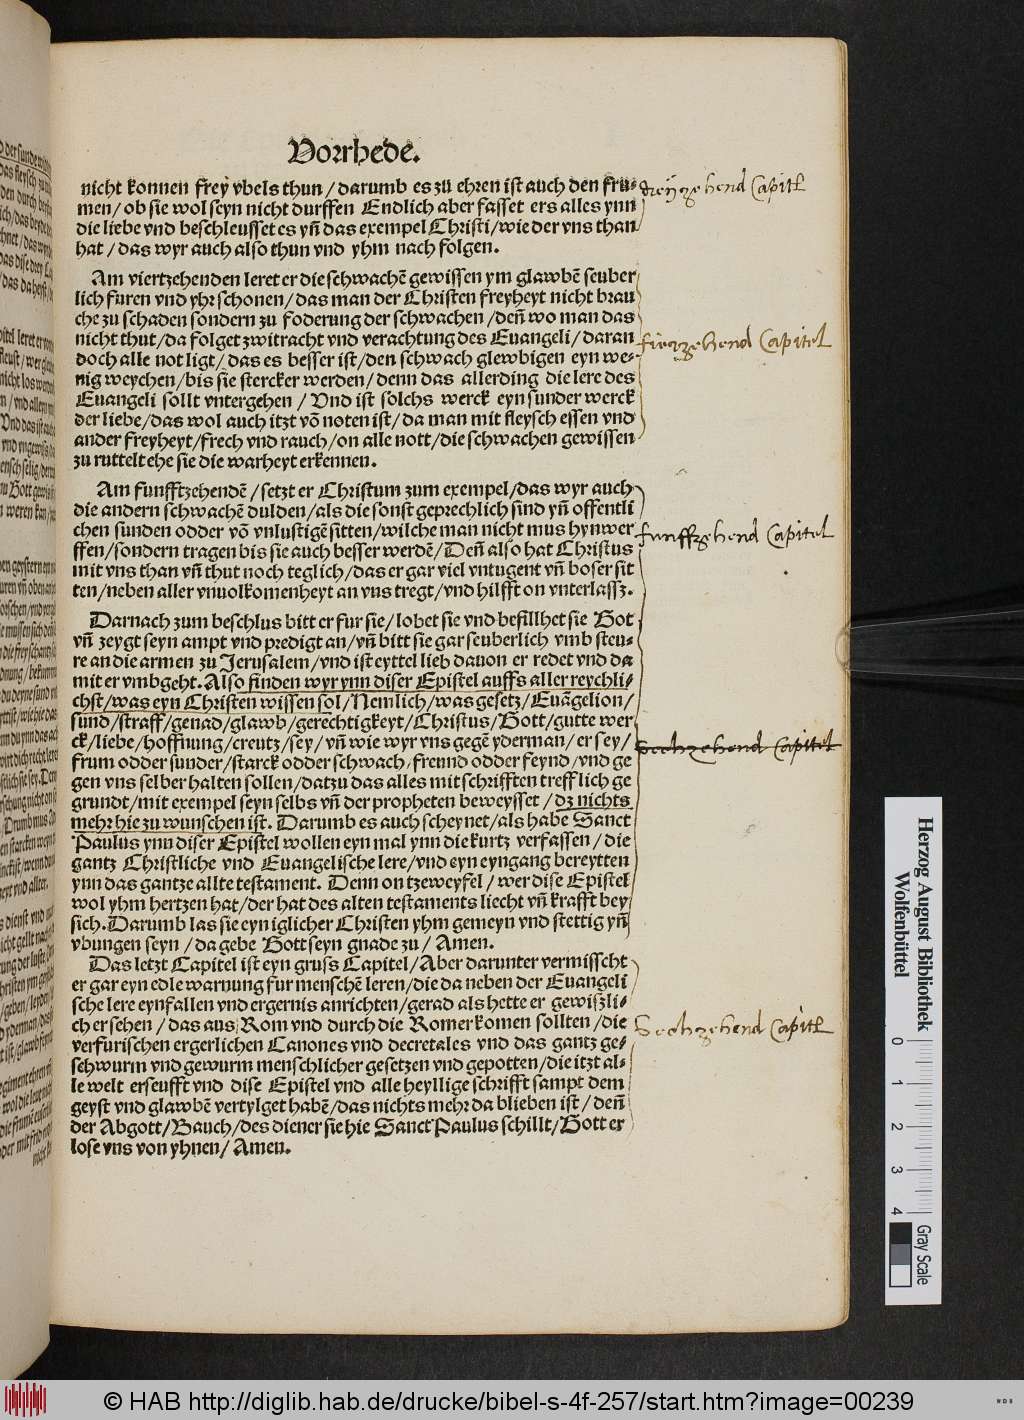 Vorrhede.
nicht konnen frey vbels thun / darumb es zů ehren ist auch den frū-
men / ob sie wol seyn nicht durffen Endlich aber fasset ers alles ynn
die liebe vnd beschleusset es yñ das exempel Christi / wie der vns than
hat / das wyr auch also thun vnd yhm nach folgen.
Am viertzehenden leret er die schwachẽ gewissen ym glawbẽ seuber
lich furen vnd yhr schonen / das man der Christen freyheyt nicht brau
che zu schaden sondern zu foderung der schwachen / deñ wo man das
nicht thut / da folget zwitracht vnd verachtung des Euangeli / daran
doch alle not ligt / das es besser ist / den schwach glewbigen eyn we-
nig weychen / bis sie stercker werden / denn das allerding die lere des
Euangeli sollt vntergehen / Vnd ist solchs werck eyn sunder werck
der liebe / das wol auch itzt võ noten ist / da man mit fleysch essen vnd
ander freyheyt / frech vnd rauch / on alle nott / die schwachen gewissen
zu ruttelt ehe sie die warheyt erkennen.
Am funfftzehendẽ / setzt er Christum zum exempel / das wyr auch
die andern schwachẽ dulden / als die sonst geprechlich sind yñ offentli
chen sunden odder võ vnlustigẽ sitten / wilche man nicht mus hynwer
ffen / sondern tragen bis sie auch besser werdẽ / Deñ also hat Christus
mit vns than vñ thut noch teglich / das er gar viel vntugent vñ boser sit
ten / neben aller vnuolkomenheyt an vns tregt / vnd hilfft on vnterlassz.
Darnach zum beschlus bitt er fur sie / lobet sie vnd befillhet sie Got
vñ zeygt seyn ampt vnd predigt an / vñ bitt sie gar seuberlich vmb steu-
re an die armen zu Jerusalem / vnd ist eyttel lieb dauon er redet vnd da
mit er vmbgeht. Also finden wyr ynn diser Epistel auffs aller reychli-
chst / was eyn Christen wissen sol / Nemlich / was gesetz / Euãgelion /
sund / straff / genad / glawb / gerechtigkeyt / Christus / Gott / gutte wer
ck / liebe / hoffnung / creutz / sey / vñ wie wyr vns gegẽ yderman / er sey /
frum odder sunder / starck odder schwach / freund odder feynd / vnd ge
gen vns selber halten sollen / datzu das alles mit schrifften trefflich ge
grundt / mit exempel seyn selbs vñ der propheten beweysset / dz nichts
mehr hie zu wunschen ist. Darumb es auch scheynet / als habe Sanct
Paulus ynn diser Epistel wollen eyn mal ynn die kurtz verfassen / die
gantz Christliche vnd Euangelische lere / vnd eyn eyngang bereytten
ynn das gantze allte testament. Denn on tzweyfel / wer dise Epistel
wol yhm hertzen hat / der hat des alten testaments liecht vñ krafft bey
sich. Darumb las sie eyn iglicher Christen yhm gemeyn vnd stettig yñ
vbungen seyn / da gebe Gott seyn gnade zu / Amen.
Das letzt Capitel ist eyn gruss Capitel / Aber darunter vermisscht
er gar eyn edle warnung fur menschẽ leren / die da neben der Euangeli
sche lere eynfallen vnd ergernis anrichten / gerad als hette er gewiszli-
ch ersehen / das aus Rom vnd durch die Romer komen sollten / die
verfurischen ergerlichen Canones vnd decretales vnd das gantz ge-
schwurm vnd gewurm menschlicher gesetzen vnd gepotten / die itzt al-
le welt erseufft vnd dise Epistel vnd alle heyllige schrifft sampt dem
geyst vnd glawbẽ vertylget habẽ / das nichts mehr da blieben ist / deñ
der Abgott / Bauch / des diener sie hie Sanct Paulus schillt / Gott er
lose vns von yhnen / Amen.
dreÿzehend Capitl
fierzehend Capitel
funffzehend Capitel
Sechzehend Capitel
Sechzehend Capitl
Herzog August Bibliothek
Wolfenbüttel
0 1 2 3 4
Gray Scale
© HAB http://diglib.hab.de/drucke/bibel-s-4f-257/start.htm?image=00239